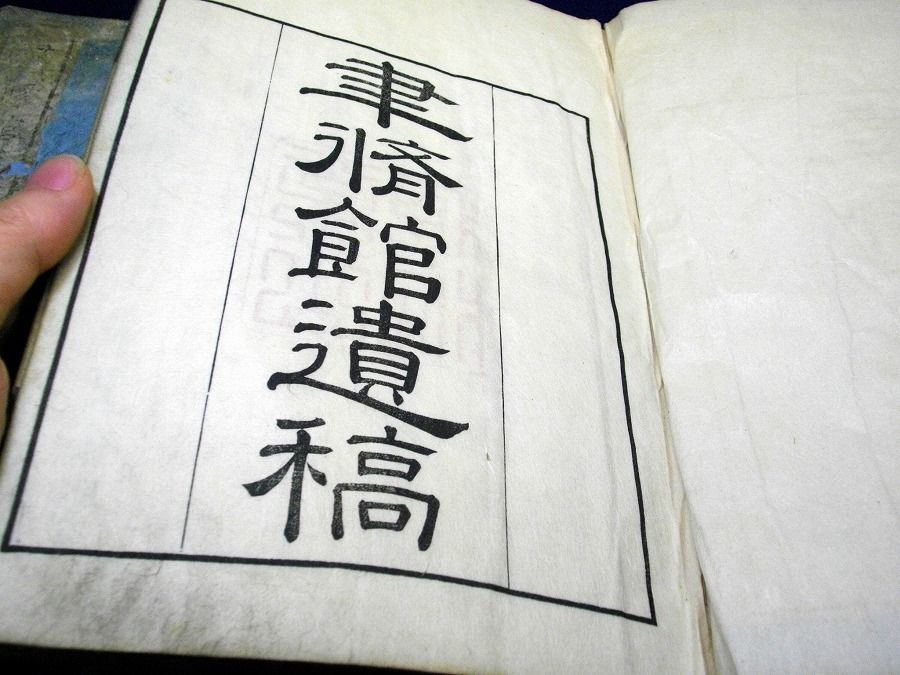 聿脩館遺稿